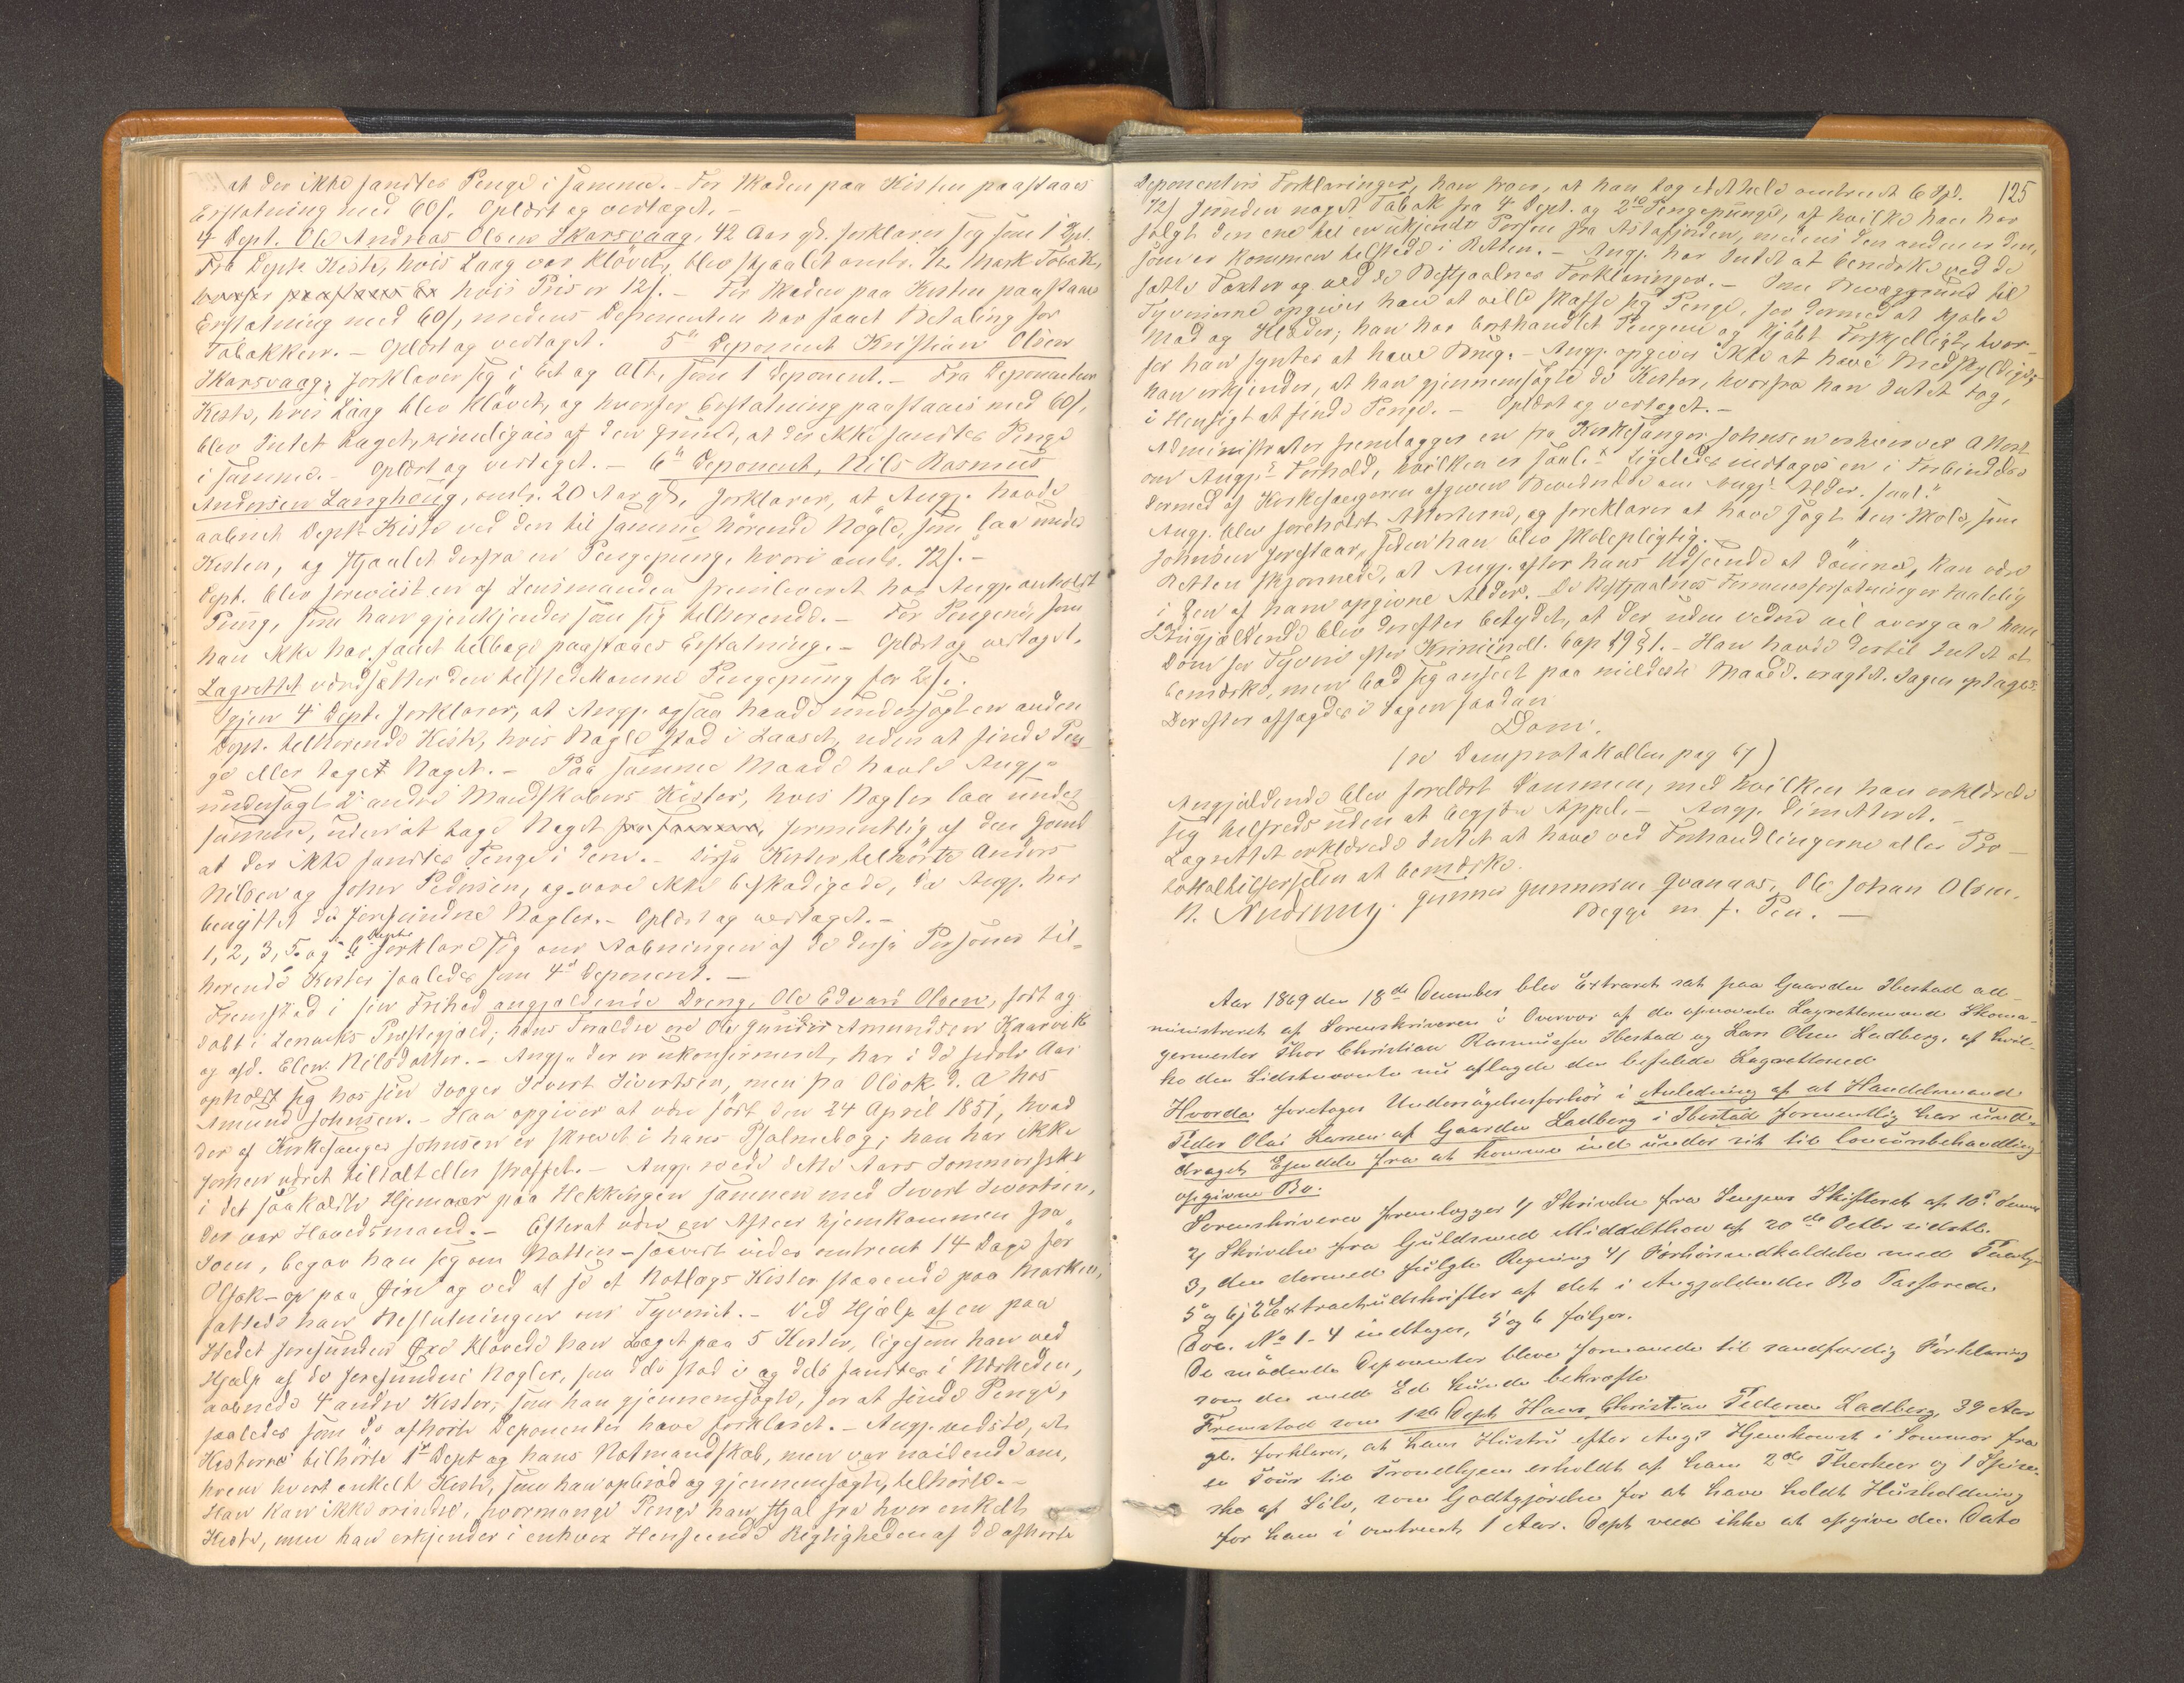 at der ikke fandtes Penge i samme. - For Skaden paa Kisten paastaaes
Erstatning med 60 s. Oplæst og vedtaget. -
4 Dept. Ole Andreas Olsen Skarsvaag, 42 Aar gl. forklarer sig som 1 Dpt.
Fra Depts Kiste, hvis Laag var kløvet, blev stjaalet omtr. ½ Mark Tobak,
hvis Pris er 12 s. - For Skaden paa Kisten paastaaes
Erstatning med 60 s, medens Deponenten har faaet Betaling for
Tobakken. - Oplæst og vedtaget. 5te Deponent Kristian Olsen
Skarsvaag, forklarer sig i Et og Alt, som 1 Deponent. - Fra Deponentens
Kiste, hvis Laag blev kløvet, og hvorfor Erstatning paastaaes med 60 s,
blev Intet taget, rimeligvis af den Grund, at der ikke fandtes Penge
i samme. - Oplæst og vedtaget. - 6te Deponent, Nils Rasmus
Andersen Langhaug, omtr. 20 Aar gl., forklarer, at Angj. havde
aabnet Depts Kiste ved den til samme hørende Nøgle, som laa under
Kisten, og stjaalet derfra en Pengepung, hvori omtr. 72 s. -
Dept. blev forevist en af Lensmanden fremleveret hos Angj. anholdt
Pung, som han gjenkjender som sig tilhørende. - For Pengene, som
han ikke har faaet tilbage paastaaes Erstatning. - Oplæst og vedtaget.
Lagrettet værdsætter den tilstedekomne Pengepung for 2 s.
Igjen 4 Dept. forklarer, at Angj. ogsaa havde undersøgt en anden
Dept. tilhørende Kiste, hvis Nøgle stod i Laaset, uden at finde Pen-
ge eller taget Noget. - Paa samme Maade havde Angj.
undersøgt 2 andre Mandskabers Kister, hvis Nøgler laa under
samme, uden at tage Noget formentlig af den Grund
at der ikke fandtes Penge i dem. - Disse Kister tilhørte Anders
Nilsen og Johan Pedersen, og vare ikke beskadigede, da Angj. har
benyttet de forefundne Nøgler. - Oplæst og vedtaget. -
1, 2, 3, 5 og 6 Depts forklare sig om Aabningen af de disse Personer til-
hørende Kister saaledes som 4de Deponent. -
Fremstod i sin Frihed angjældende Dreng, Ole Edvard Olsen, født og
døbt i Lenviks Præstegjæld; hans Forældre ere Ole Gunder Amundsen Kaarvik
og afd. Elen Nilsdatter. - Angj. der er ukonfirmeret, har i de sidste Aar
opholdt sig hos sin Svoger Sivert Sivertsen, men fra Olsok d. A. hos
Amund Johnsen. - Han opgiver at være født den 24 April 1851, hvad
der af Kirkesanger Johnsen er skrevet i hans Psalmebog; han har ikke
forhen været tiltalt eller straffet. - Angj. roede dette Aars Sommerfiske
i det saakaldte Hjemvær paa Hekkingen sammen med Sivert Sivertsen,
der var Høvedsmand. - Efterat være en Aften hjemkommen fra
Søen, begav han sig om Natten - saavidt vides omtrent 14 Dage før
Olsok - op paa Øen og ved at se et Notlags Kister staaende paa Marken,
fattede han Beslutningen om Tyveriet. - Ved Hjælp af en paa
Stedet forefunden Øxe kløvede han Laaget paa 5 Kister, ligesom han ved
Hjælp af de forefundne Nøgler, som dels stod i og dels fandtes i Nærheden,
aabnede 4 andre Kister, som han gjennemsøgte, for at finde Penge,
saaledes som de afhørte Deponenter have forklaret. - Angj. vidste, at
Kisterne tilhørte 1ste Dept og hans Notmandskab, men var uvidende om,
hvem hvert enkelt Kiste, som han opbrød og gjennemsøgte, tilhørte. -
Han kan ikke erindre, hvormange Penge han stjal fra hver enkelt
Kiste, men han erkjender i enhver Henseende Rigtigheden af de afhørte
125
Deponenters Forklaringer, han tror, at han tog idethele omtrent 6 Spd.
72 s foruden noget Tobak fra 4 Dept. og 2de Pengepunge, af hvilke han har
solgt den ene til en ukjendt Person fra Astafjorden, medens den anden er den,
som er kommen tilstede i Retten. - Angj. har Intet at bemærke ved de
satte Taxter og ved de Bestjaalnes Forklaringer. - Som Bevæggrund til
Tyverierne opgiver han at ville skaffe sig Penge, for dermed at kjøbe
Mad og Klæder; han har borthandlet Pengene og kjøbt Forskjelligt, hvor-
for han syntes at have Brug. - Angj. opgiver ikke at have Medskyldige;
han erkjender, at han gjennemsøgte de Kister, hvorfra han Intet tog,
i Hensigt at finde Penge. - Oplæst og vedtaget. -
Administrator fremlægger en fra Kirkesanger Johnsen erhvervet Attest
om Angj.s Forhold, hvilken er saal. Ligeledes indtages en i Forbindelse
dermed af Kirkesangeren afgiven Bevidnelse om Angj. Alder. saal.
Angj. blev foreholdt Attesterne, og forklarer at have søgt den Skole, som
Johnsen forestaar, siden han blev skolepligtig. -
Retten skjønnede, at Angj. efter hans Udseende at dømme, kan være
i den af ham opgivne Alder. - De Bestjaalnes Formuesforfatninger taalelig
Angjældende blev derefter betydet, at der uden videre vil overgaa ham
Dom for Tyveri efter Kriminall. Cap 19 § 1. - Han havde dertil Intet at
bemærke, men bad sig anseet paa mildeste Maade. Sagen optages.
Derefter afsagdes i Sagen saadan
Dom:
(se Domprotokollen pag 67)
Angjældende blev forelæst Dommen, med hvilken han erklærede
sig tilfreds uden at begjære Appel. - Angj. dimitteret. -
Lagrettet erklærede Intet at have ved Forhandlingerne eller Pro-
tokoltilførselen at bemærke.
Gunner Gunnersen Granaas, Ole Johan Olsen.
Begge m. f. Pen. -
Aar 1869 den 18de December blev Extraret sat paa Gaarden Ibestad ad-
ministreret af Sorenskriveren i Overvær af de opnævnte Lagrettesmænd Skoma-
germester Thor Christian Rasmussen Ibestad og Lars Olsen Ladberg, af hvil-
ke den Sidstnævnte nu aflagde den befalede Lagretteseed
Hvorda foretoges Undersøgelsesforhør i Anledning af at Handelsmand
Peder Olai Larsen af Gaarden Ladberg i Ibestad formentlig har und-
draget Eiendele fra at komme ind under sit til Concursbehandling
opgivne Bo.
Sorenskriveren fremlægger 1/ Skrivelse fra Senjens Skifteret af 10de dennes
2/ Skrivelse fra Guldsmed Middelthon af 20de Octbr sidstl.
3, den dermed fulgte Regning 4/ Forhørsindkaldelse med Paateg-
5 og 6/ 2de Extractudskrifter af det i Angjældendes Bo Passerede
Doc. No 1-4 indtages, 5 og 6 følger.
De mødende Deponenter bleve formanede til sandfærdig Forklaring
som de med Ed kunde bekræfte
Fremstod som 1ste Dept Hans Christian Pedersen Ladberg, 39 Aar
gl. forklarer, at hans Hustru efter Angj.s Hjemkomst i Sommer fra
en Tour til Trondhjem erholdt af ham 2de Theskeer og 1 Spise-
ske af Sølv, som Godtgjørelse for at have holdt Huusholdning
for ham i omtrent 1 Aar. Dept veed ikke at opgive den Dato